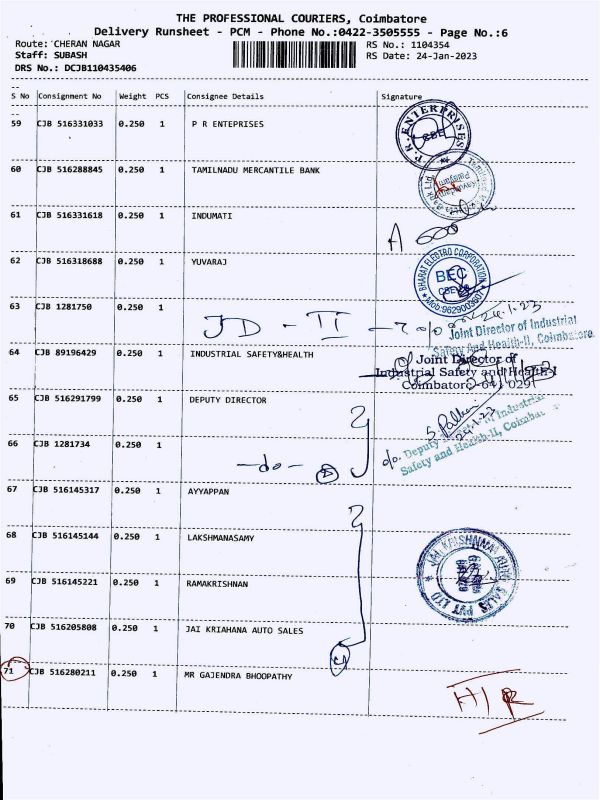 THE PROFESSIONAL COURIERS, Coimbatore
Delivery Runsheet - PCM - Phone No.:0422-3505555 - Page No.:6
Route: CHERAN NAGAR RS No.: 1104354
Staff: SUBASH RS Date: 24-Jan-2023
DRS No.: DCJB110435406
S No Consignment No Weight PCS Consignee Details Signature
59 CJB 516331033 0.250 1 P R ENTEPRISES
P.R. ENTERPRISES CBE
60 CJB 516288845 0.250 1 TAMILNADU MERCANTILE BANK
61 CJB 516331618 0.250 1 INDUMATI
62 CJB 516318688 0.250 1 YUVARAJ
BHARAT ELECTRO CORPORATION
BEC
63 CJB 1281750 0.250 1
JD - II
24-1-23
Joint Director of Industrial
Safety And Health-II, Coimbatore
64 CJB 89196429 0.250 1 INDUSTRIAL SAFETY&HEALTH
Joint Director of
Industrial Safety and Health-I
Coimbatore-641 029
65 CJB 516291799 0.250 1 DEPUTY DIRECTOR
24-1-23
66 CJB 1281734 0.250 1
-do-
Deputy of Industrial
Safety and Health-II, Coimba
67 CJB 516145317 0.250 1 AYYAPPAN
68 CJB 516145144 0.250 1 LAKSHMANASAMY
69 CJB 516145221 0.250 1 RAMAKRISHNAN
JAI KRISHNAA AUTO SALES PVT LTD
70 CJB 516205808 0.250 1 JAI KRIAHANA AUTO SALES
4
71 CJB 516280211 0.250 1 MR GAJENDRA BHOOPATHY